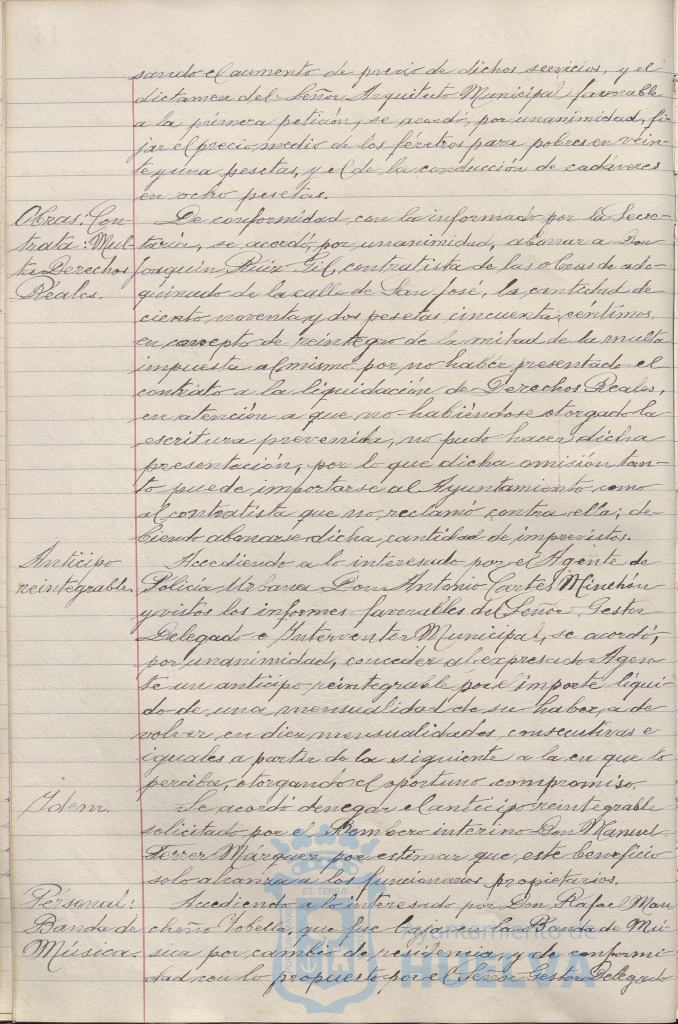 sando el aumento de precio de dichos servicios, y el
dictamen del Señor Arquitecto Municipal favorable
a la primera petición, se acordó, por unanimidad, fi-
jar el precio medio de los féretros para pobres en vein-
te y una pesetas, y el de la conducción de cadáveres
en ocho pesetas.
Obras: Con-
trata: Mul-
ta Derechos
Reales.
De conformidad con lo informado por la Secre-
taría, se acordó, por unanimidad, abonar a Don
Joaquín Ruiz Gil, contratista de las obras de ado-
quinado de la calle de San José, la cantidad de
ciento noventa y dos pesetas cincuenta céntimos,
en concepto de reintegro de la mitad de la multa
impuesta al mismo por no haber presentado el
contrato a la liquidación de Derechos Reales,
en atención a que no habiéndose otorgado la
escritura prevenida, no pudo hacer dicha
presentación, por lo que dicha omisión tan-
to puede importarse al Ayuntamiento como
al contratista que no reclamó contra ella; de-
biendo abonarse dicha cantidad de imprevistos.
Anticipo
reintegrable.
Accediendo a lo interesado por el Agente de
Policía Urbana Don Antonio Cartes Minchón
y vistos los informes favorables del Señor Gestor
Delegado e Interventor Municipal, se acordó,
por unanimidad, conceder al expresado Agen-
te un anticipo reintegrable por el importe líqui-
do de una mensualidad de su haber, a de-
volver en diez mensualidades consecutivas e
iguales a partir de la siguiente a la en que lo
perciba, otorgando el oportuno compromiso.
Idem.
Se acordó denegar el anticipo reintegrable
solicitado por el Bombero interino Don Manuel
Ferrer Márquez por estimar que este beneficio
solo alcanza a los funcionarios propietarios.
Personal:
Banda de
Música.
Accediendo a lo interesado por Don Rafael Man-
cheño Tobella, que fue baja en la Banda de Mú-
sica por cambio de residencia, y de conformi-
dad con lo propuesto por el Señor Gestor Delegado
Ayuntamiento de
HUELVA